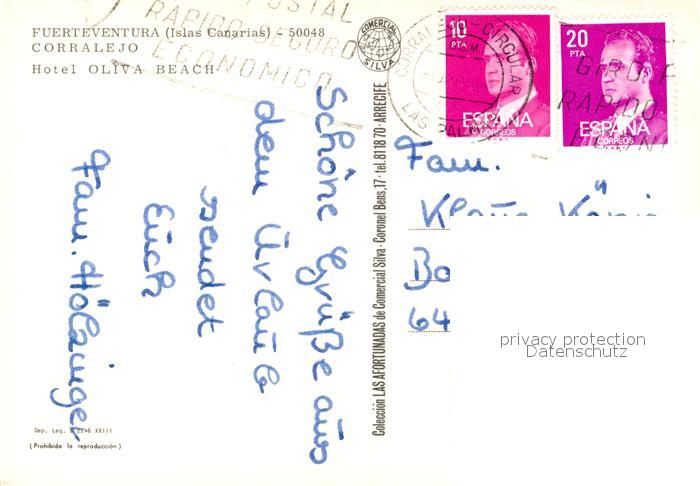 FUERTEVENTURA (Islas Canarias) - 50048
CORRALEJO
Hotel OLIVA BEACH
POSTAL
RAPIDO SEGURO
ECONOMICO
COMERCIAL
SILVA
CIRCULAR
LAS PALMAS
10
PTA
ESPAÑA
CORREOS
20
PTA
GIRO
RAPIDO
ESPAÑA
CORREOS
Schöne Grüße aus
dem Urlaub
sendet
Euch
Fam.
Colección LAS AFORTUNADAS de Comercial Silva - Coronel Bens, 17 - tel. 81 18 70 - ARRECIFE
Fam.
Klaus
64
privacy protection
Datenschutz
(Prohibida la reproducción)